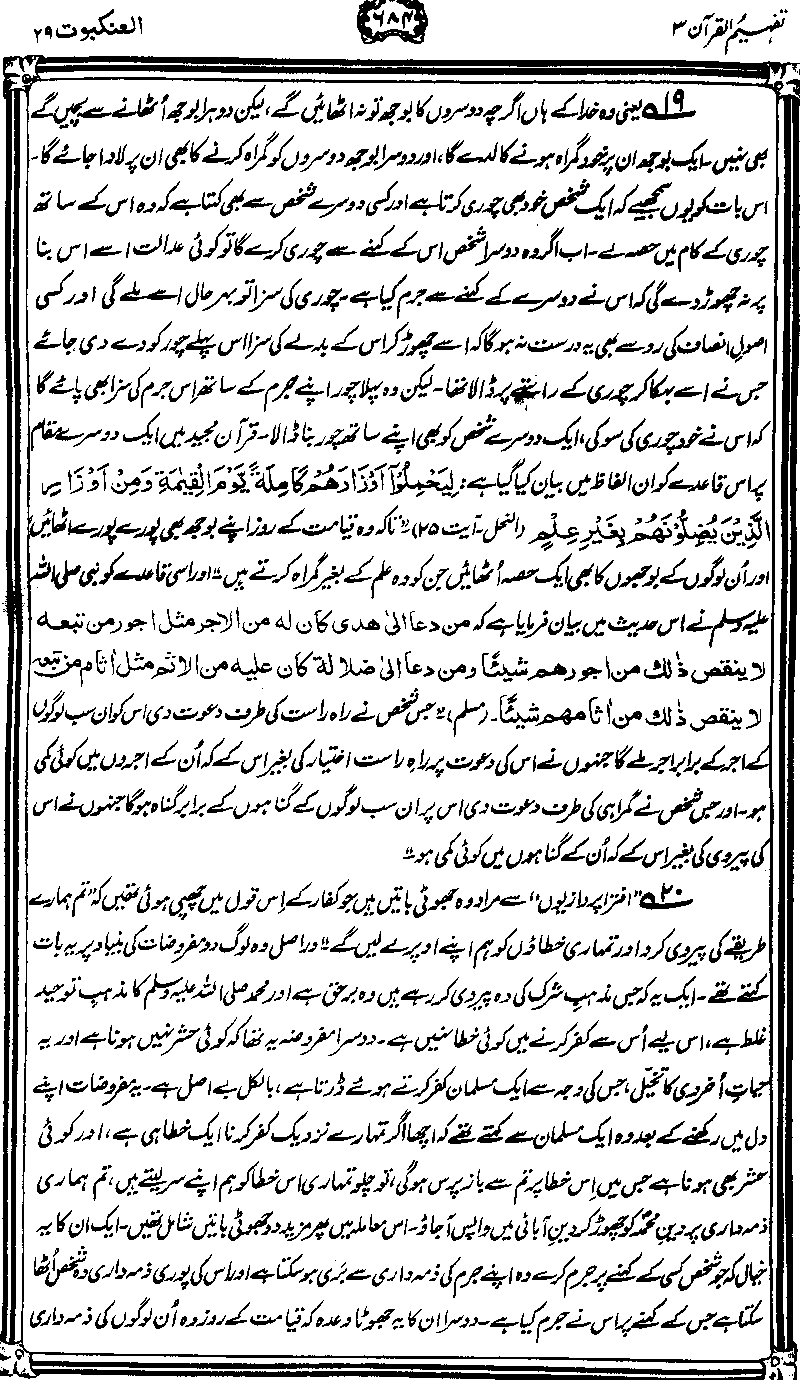 تفہیم القرآن ۳
۶۸۴
العنکبوت ۲۹
۱۹؎ یعنی وہ خدا کے ہاں اگرچہ دوسروں کا بوجھ تو نہ اٹھائیں گے، لیکن دوہرا بوجھ اُٹھانے سے بچیں گے
بھی نہیں۔ ایک بوجھ ان پر خود گمراہ ہونے کا لدے گا، اور دوسرا بوجھ دوسروں کو گمراہ کرنے کا بھی ان پر لادا جائے گا۔
اس بات کو یوں سمجھیے کہ ایک شخص خود بھی چوری کرتا ہے اور کسی دوسرے شخص سے بھی کہتا ہے کہ وہ اس کے ساتھ
چوری کے کام میں حصہ لے۔ اب اگر وہ دوسرا شخص اس کے کہنے سے چوری کرے گا تو کوئی عدالت اسے اس بنا
پر نہ چھوڑ دے گی کہ اس نے دوسرے کے کہنے سے جرم کیا ہے۔ چوری کی سزا تو بہرحال اسے ملے گی اور کسی
اصولِ انصاف کی رو سے بھی یہ درست نہ ہوگا کہ اسے چھوڑ کر اس کے بدلے کی سزا اس پہلے چور کو دے دی جائے
جس نے اسے بہکا کر چوری کے راستے پر ڈالا تھا۔ لیکن وہ پہلا چور اپنے جرم کے ساتھ اس جرم کی سزا بھی پائے گا
کہ اس نے خود چوری کی سو کی، ایک دوسرے شخص کو بھی اپنے ساتھ چور بنا ڈالا۔ قرآن مجید میں ایک دوسرے مقام
پر اس قاعدے کو ان الفاظ میں بیان کیا گیا ہے: لِيَحْمِلُوْٓا اَوْزَارَهُمْ كَامِلَةً يَّوْمَ الْقِيٰمَةِ وَمِنْ اَوْزَارِ
الَّذِيْنَ يُضِلُّوْنَهُمْ بِغَيْرِ عِلْمٍ (النحل۔ آیت ۲۵) "تاکہ وہ قیامت کے روز اپنے بوجھ بھی پورے پورے اٹھائیں
اور اُن لوگوں کے بوجھوں کا بھی ایک حصہ اُٹھائیں جن کو وہ علم کے بغیر گمراہ کرتے ہیں"۔ اور اسی قاعدے کو نبی صلی اللہ
علیہ وسلم نے اس حدیث میں بیان فرمایا ہے کہ من دعا الیٰ ھدی کان لہ من الاجر مثل اجور من تبعہ
لا ینقص ذٰلك من اجورھم شیئًا ومن دعا الیٰ ضلالة کان علیہ من الاثم مثل اٰثام من تبعہ
لا ینقص ذٰلك من اٰثامھم شیئًا۔ (مسلم) "جس شخص نے راہ راست کی طرف دعوت دی اس کو ان سب لوگوں
کے اجر کے برابر اجر ملے گا جنہوں نے اس کی دعوت پر راہِ راست اختیار کی بغیر اس کے کہ اُن کے اجروں میں کوئی کمی
ہو۔ اور جس شخص نے گمراہی کی طرف دعوت دی اس پر ان سب لوگوں کے گناہوں کے برابر گناہ ہوگا جنہوں نے اس
کی پیروی کی بغیر اس کے کہ اُن کے گناہوں میں کوئی کمی ہو"
۲۰؎ "افترا پردازیوں" سے مراد وہ جھوٹی باتیں ہیں جو کفار کے اِس قول میں چھپی ہوئی تھیں کہ "تم ہمارے
طریقے کی پیروی کرو اور تمہاری خطاؤں کو ہم اپنے اوپر لے لیں گے"۔ دراصل وہ لوگ دو مفروضات کی بنیاد پر یہ بات
کہتے تھے۔ ایک یہ کہ جس مذہبِ شرک کی وہ پیروی کر رہے ہیں وہ برحق ہے اور محمد صلی اللہ علیہ وسلم کا مذہبِ توحید
غلط ہے، اس لیے اُس سے کفر کرنے میں کوئی خطا نہیں ہے۔ دوسرا مفروضہ یہ تھا کہ کوئی حشر نہیں ہونا ہے اور یہ
حیاتِ اُخروی کا تخیّل، جس کی وجہ سے ایک مسلمان کفر کرتے ہوئے ڈرتا ہے، بالکل بے اصل ہے۔ یہ مفروضات اپنے
دل میں رکھنے کے بعد وہ ایک مسلمان سے کہتے تھے کہ اچھا اگر تمہارے نزدیک کفر کرنا ایک خطا ہی ہے، اور کوئی
حشر بھی ہونا ہے جس میں اِس خطا پر تم سے باز پرس ہوگی، تو چلو تمہاری اس خطا کو ہم اپنے سر لیتے ہیں، تم ہماری
ذمہ داری پر دینِ محمدؐ کو چھوڑ کر دینِ آبائی میں واپس آ جاؤ۔ اس معاملہ میں پھر مزید دو جھوٹی باتیں شامل تھیں۔ ایک ان کا یہ
خیال کہ جو شخص کسی کے کہنے پر جرم کرے وہ اپنے جرم کی ذمہ داری سے بَری ہو سکتا ہے اور اس کی پوری ذمہ داری وہ شخص اُٹھا
سکتا ہے جس کے کہنے پر اس نے جرم کیا ہے۔ دوسرا ان کا یہ جھوٹا وعدہ کہ قیامت کے روز وہ اُن لوگوں کی ذمہ داری